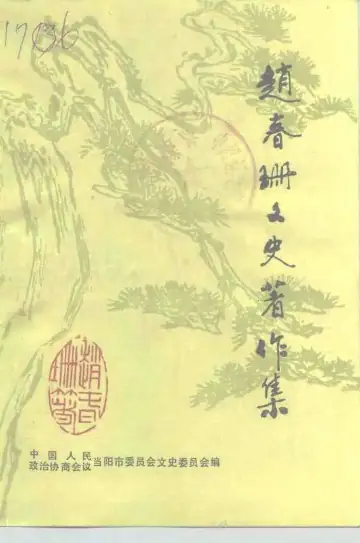 1706
趙春珊文史著作集
中国人民
政治协商会议 当阳市委员会文史委员会编